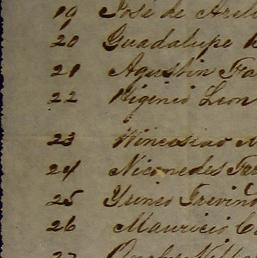 19 José de Arel
20 Guadalupe
21 Agustin Fa
22 Higenio Leon
23 Wincoslao
24 Nicomedes Far
25 Ynines Trevino
26 Mauricio Ca
27